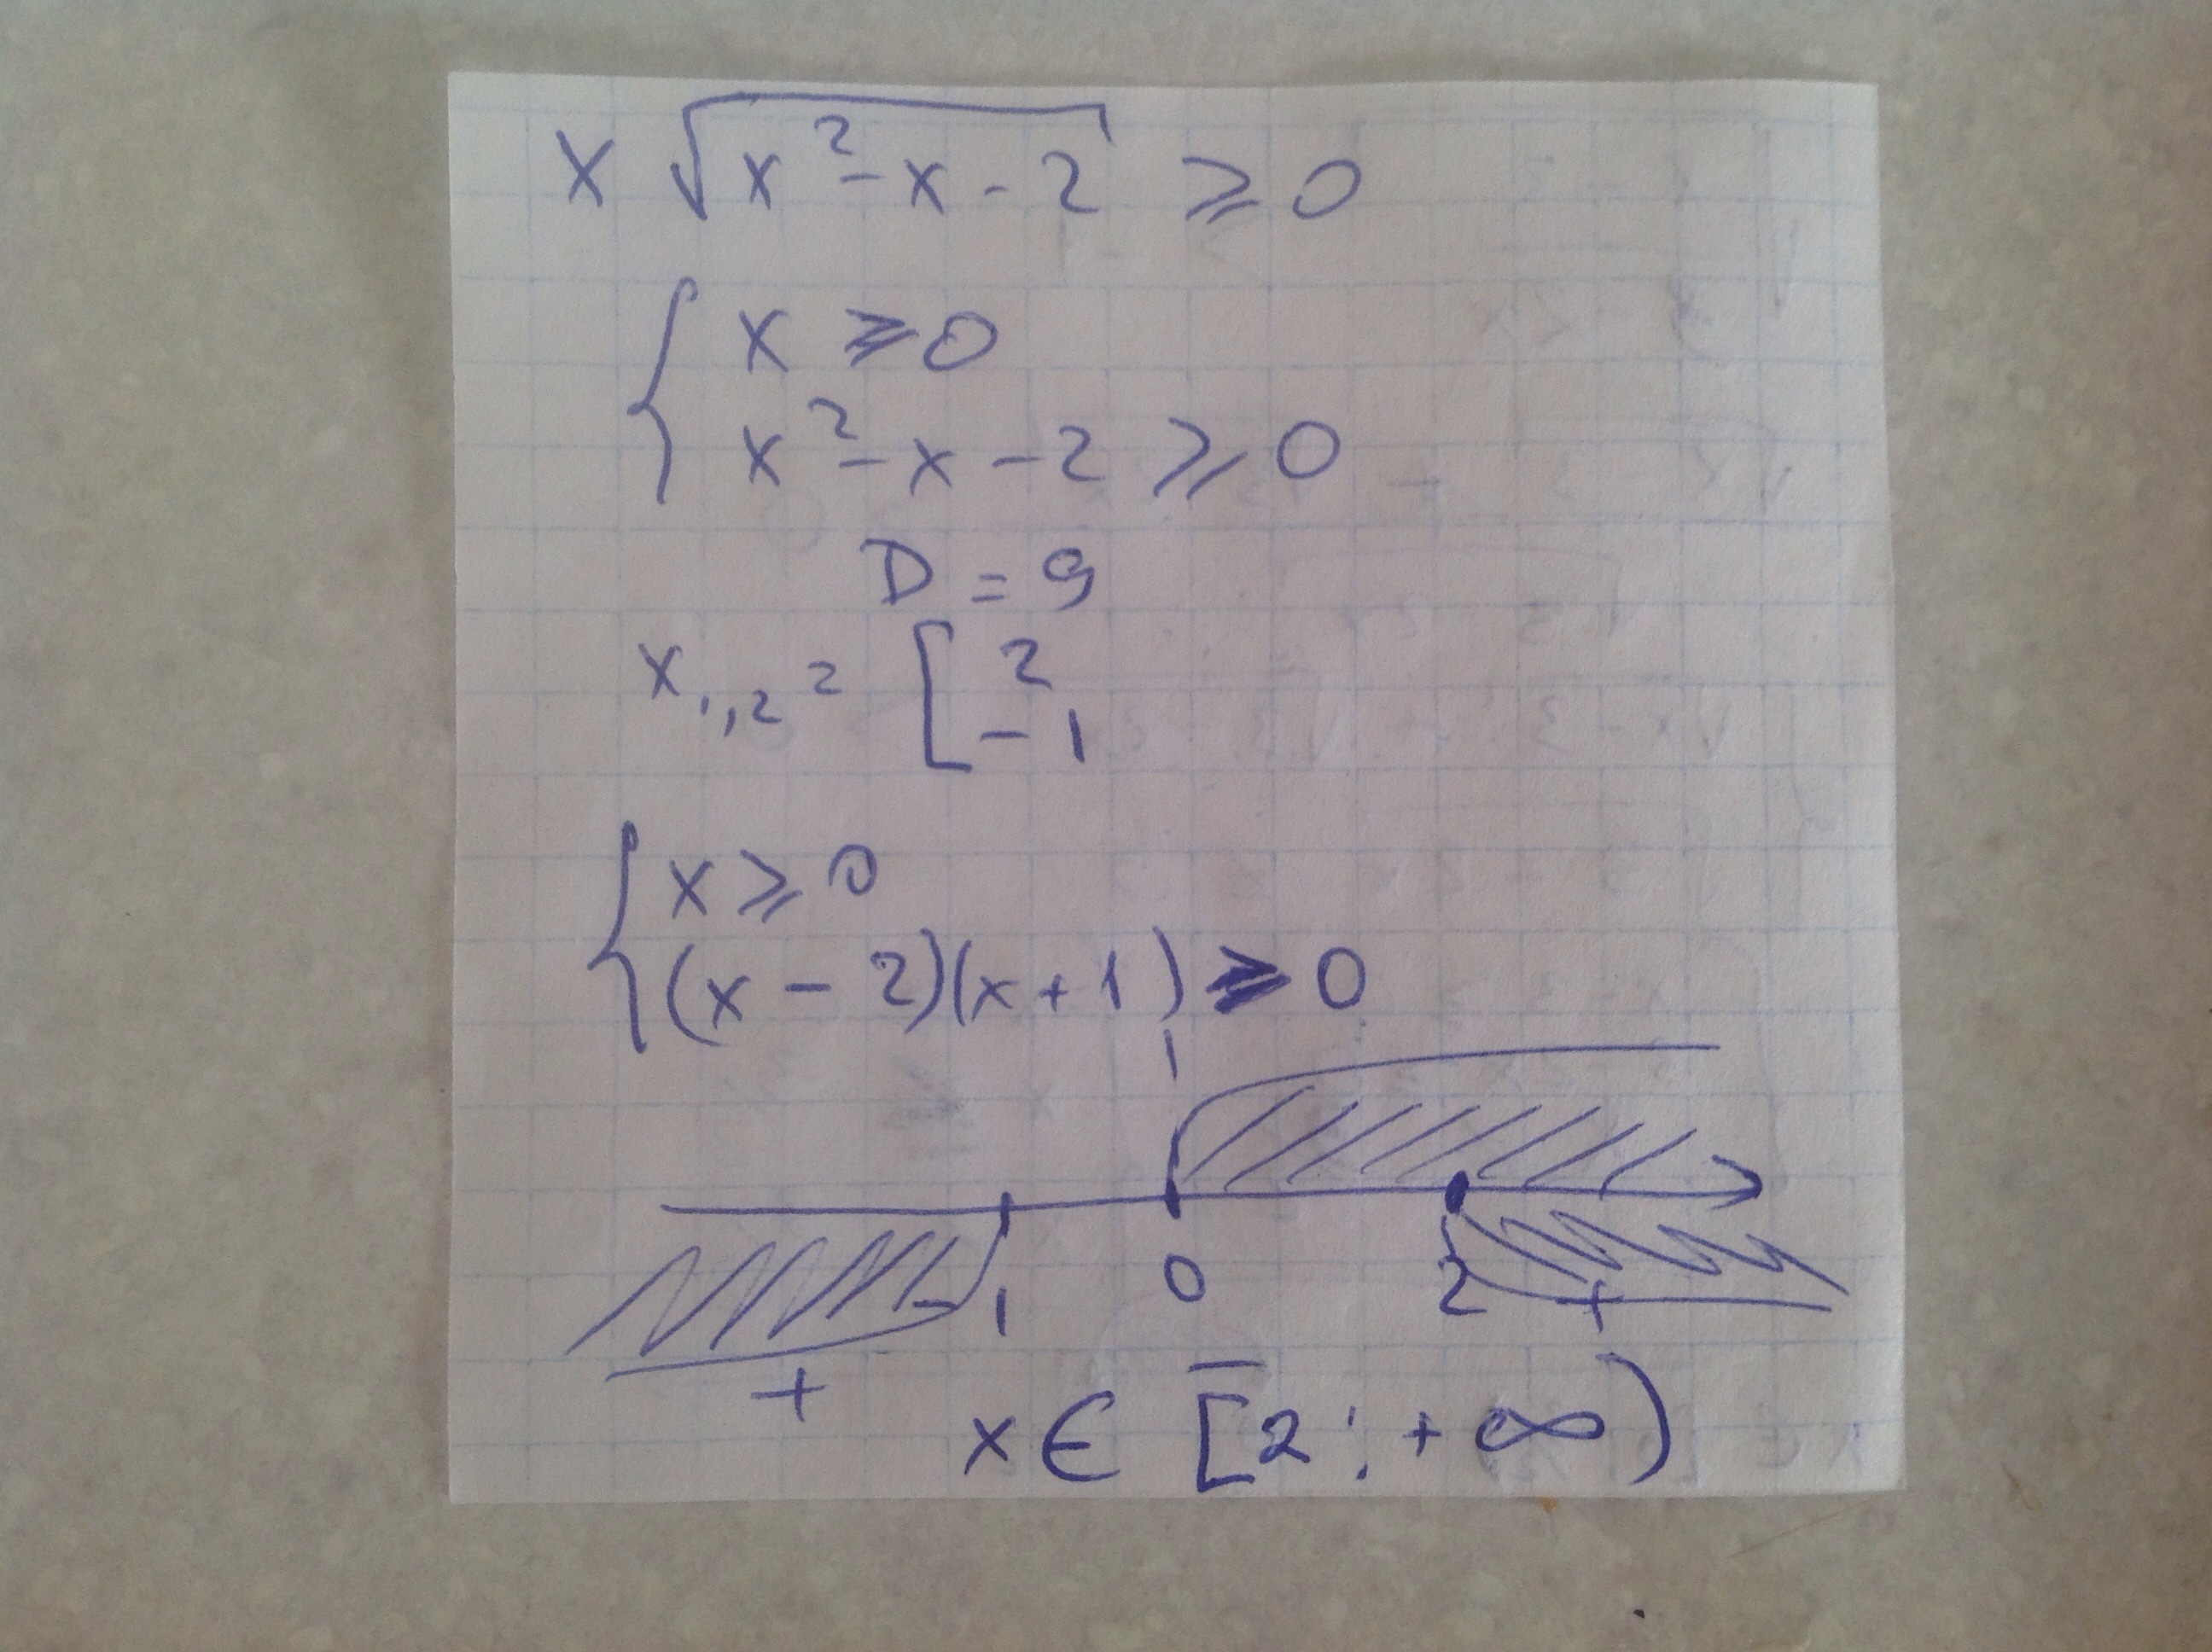 x √(x² - x - 2) ⩾ 0
{ x ⩾ 0
x² - x - 2 ⩾ 0
D = 9
x₁,₂ = [ 2
- 1
{ x ⩾ 0
(x - 2)(x + 1) ⩾ 0
-1 0 2 +
+ −
x ∈ [2; +∞)